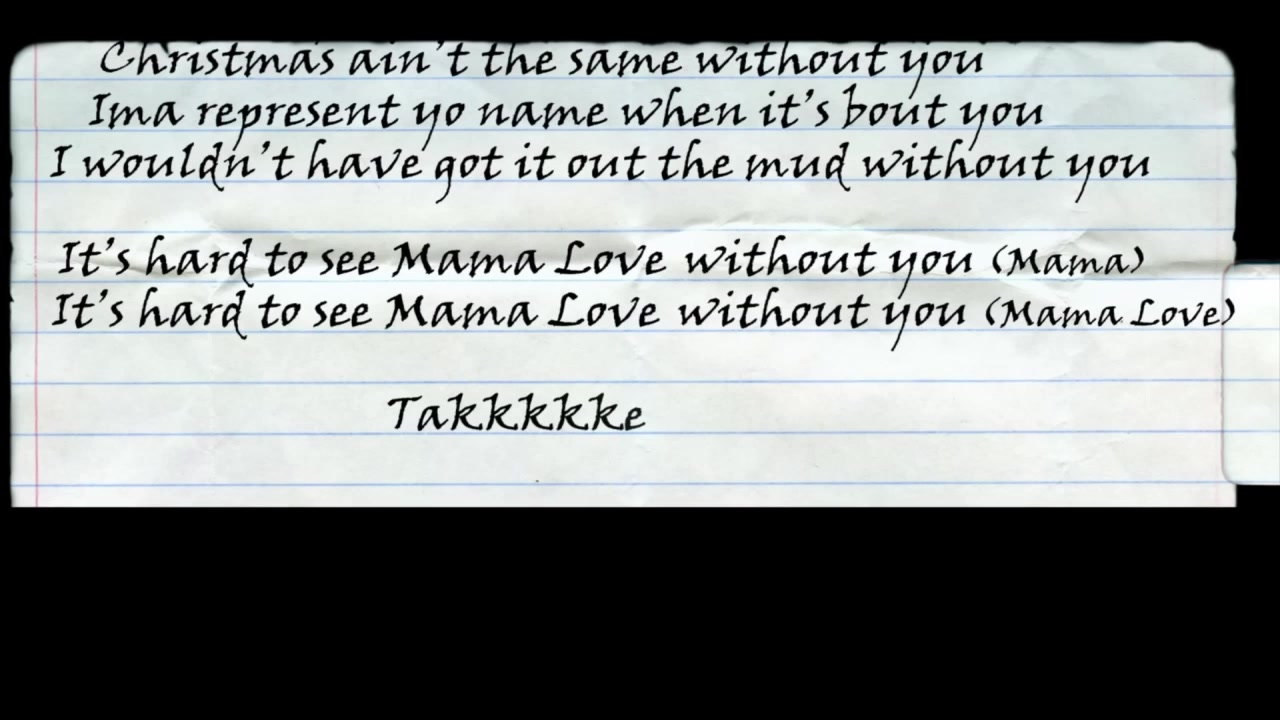 Christmas ain't the same without you
Ima represent yo name when it's bout you
I wouldn't have got it out the mud without you
It's hard to see Mama Love without you (Mama)
It's hard to see Mama Love without you (Mama Love)
Takkkkke